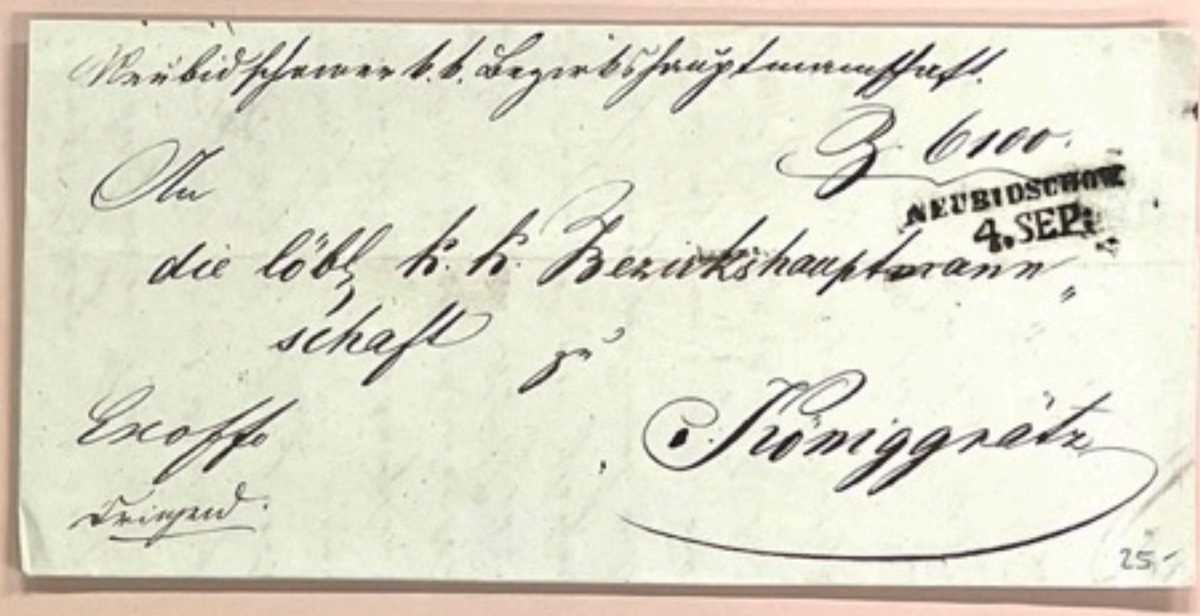 Neubidschower k. k. Bezirkshauptmannschaft.
Z 6100.
NEUBIDSCHOW
4. SEP.
An
die löbl k. k. Bezirkshauptmann„
schaft zu
Königgrätz
Exoffo
Dringend.
25.-